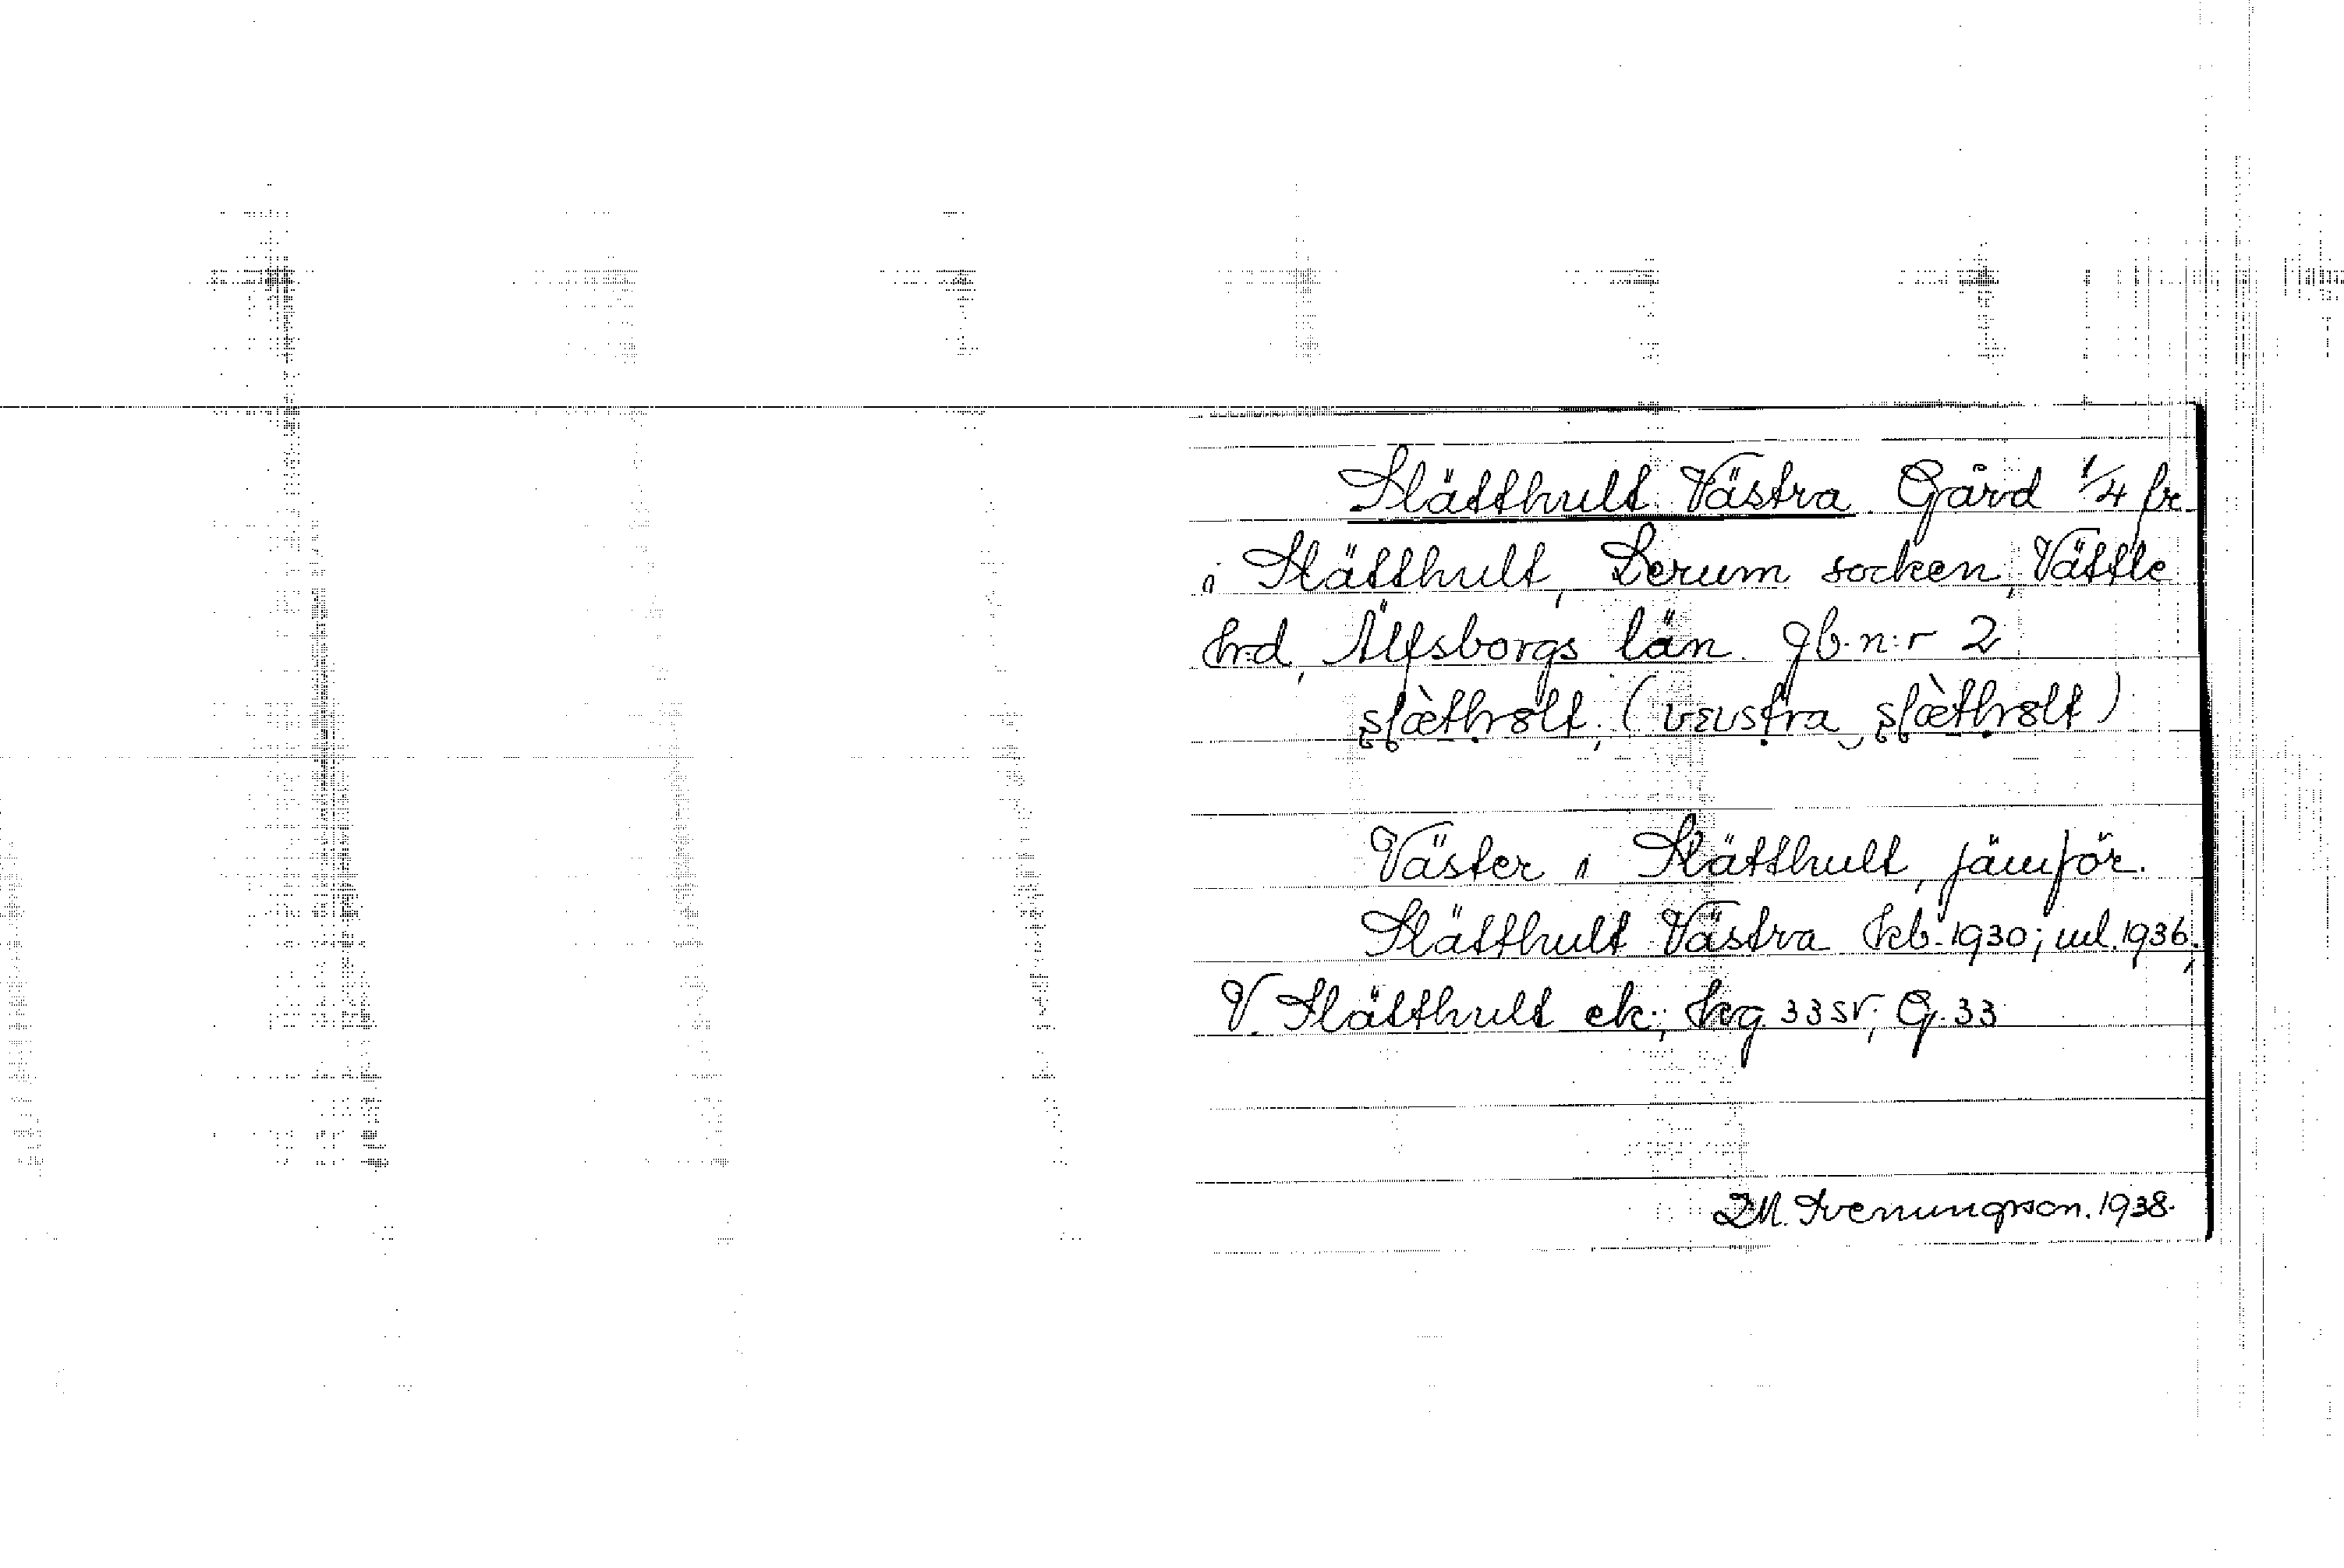 Slätthult Västra. Gård 1/4 fr.
i Slätthult, Lerum socken, Vättle
hrd, Älfsborgs län. gb.n:r 2
Väster i Slätthult, jämför.
Slätthult Västra kb. 1930; ml. 1936,
V. Slätthult ek; hrg 33 sv; G. 33
Svenungsson. 1938.